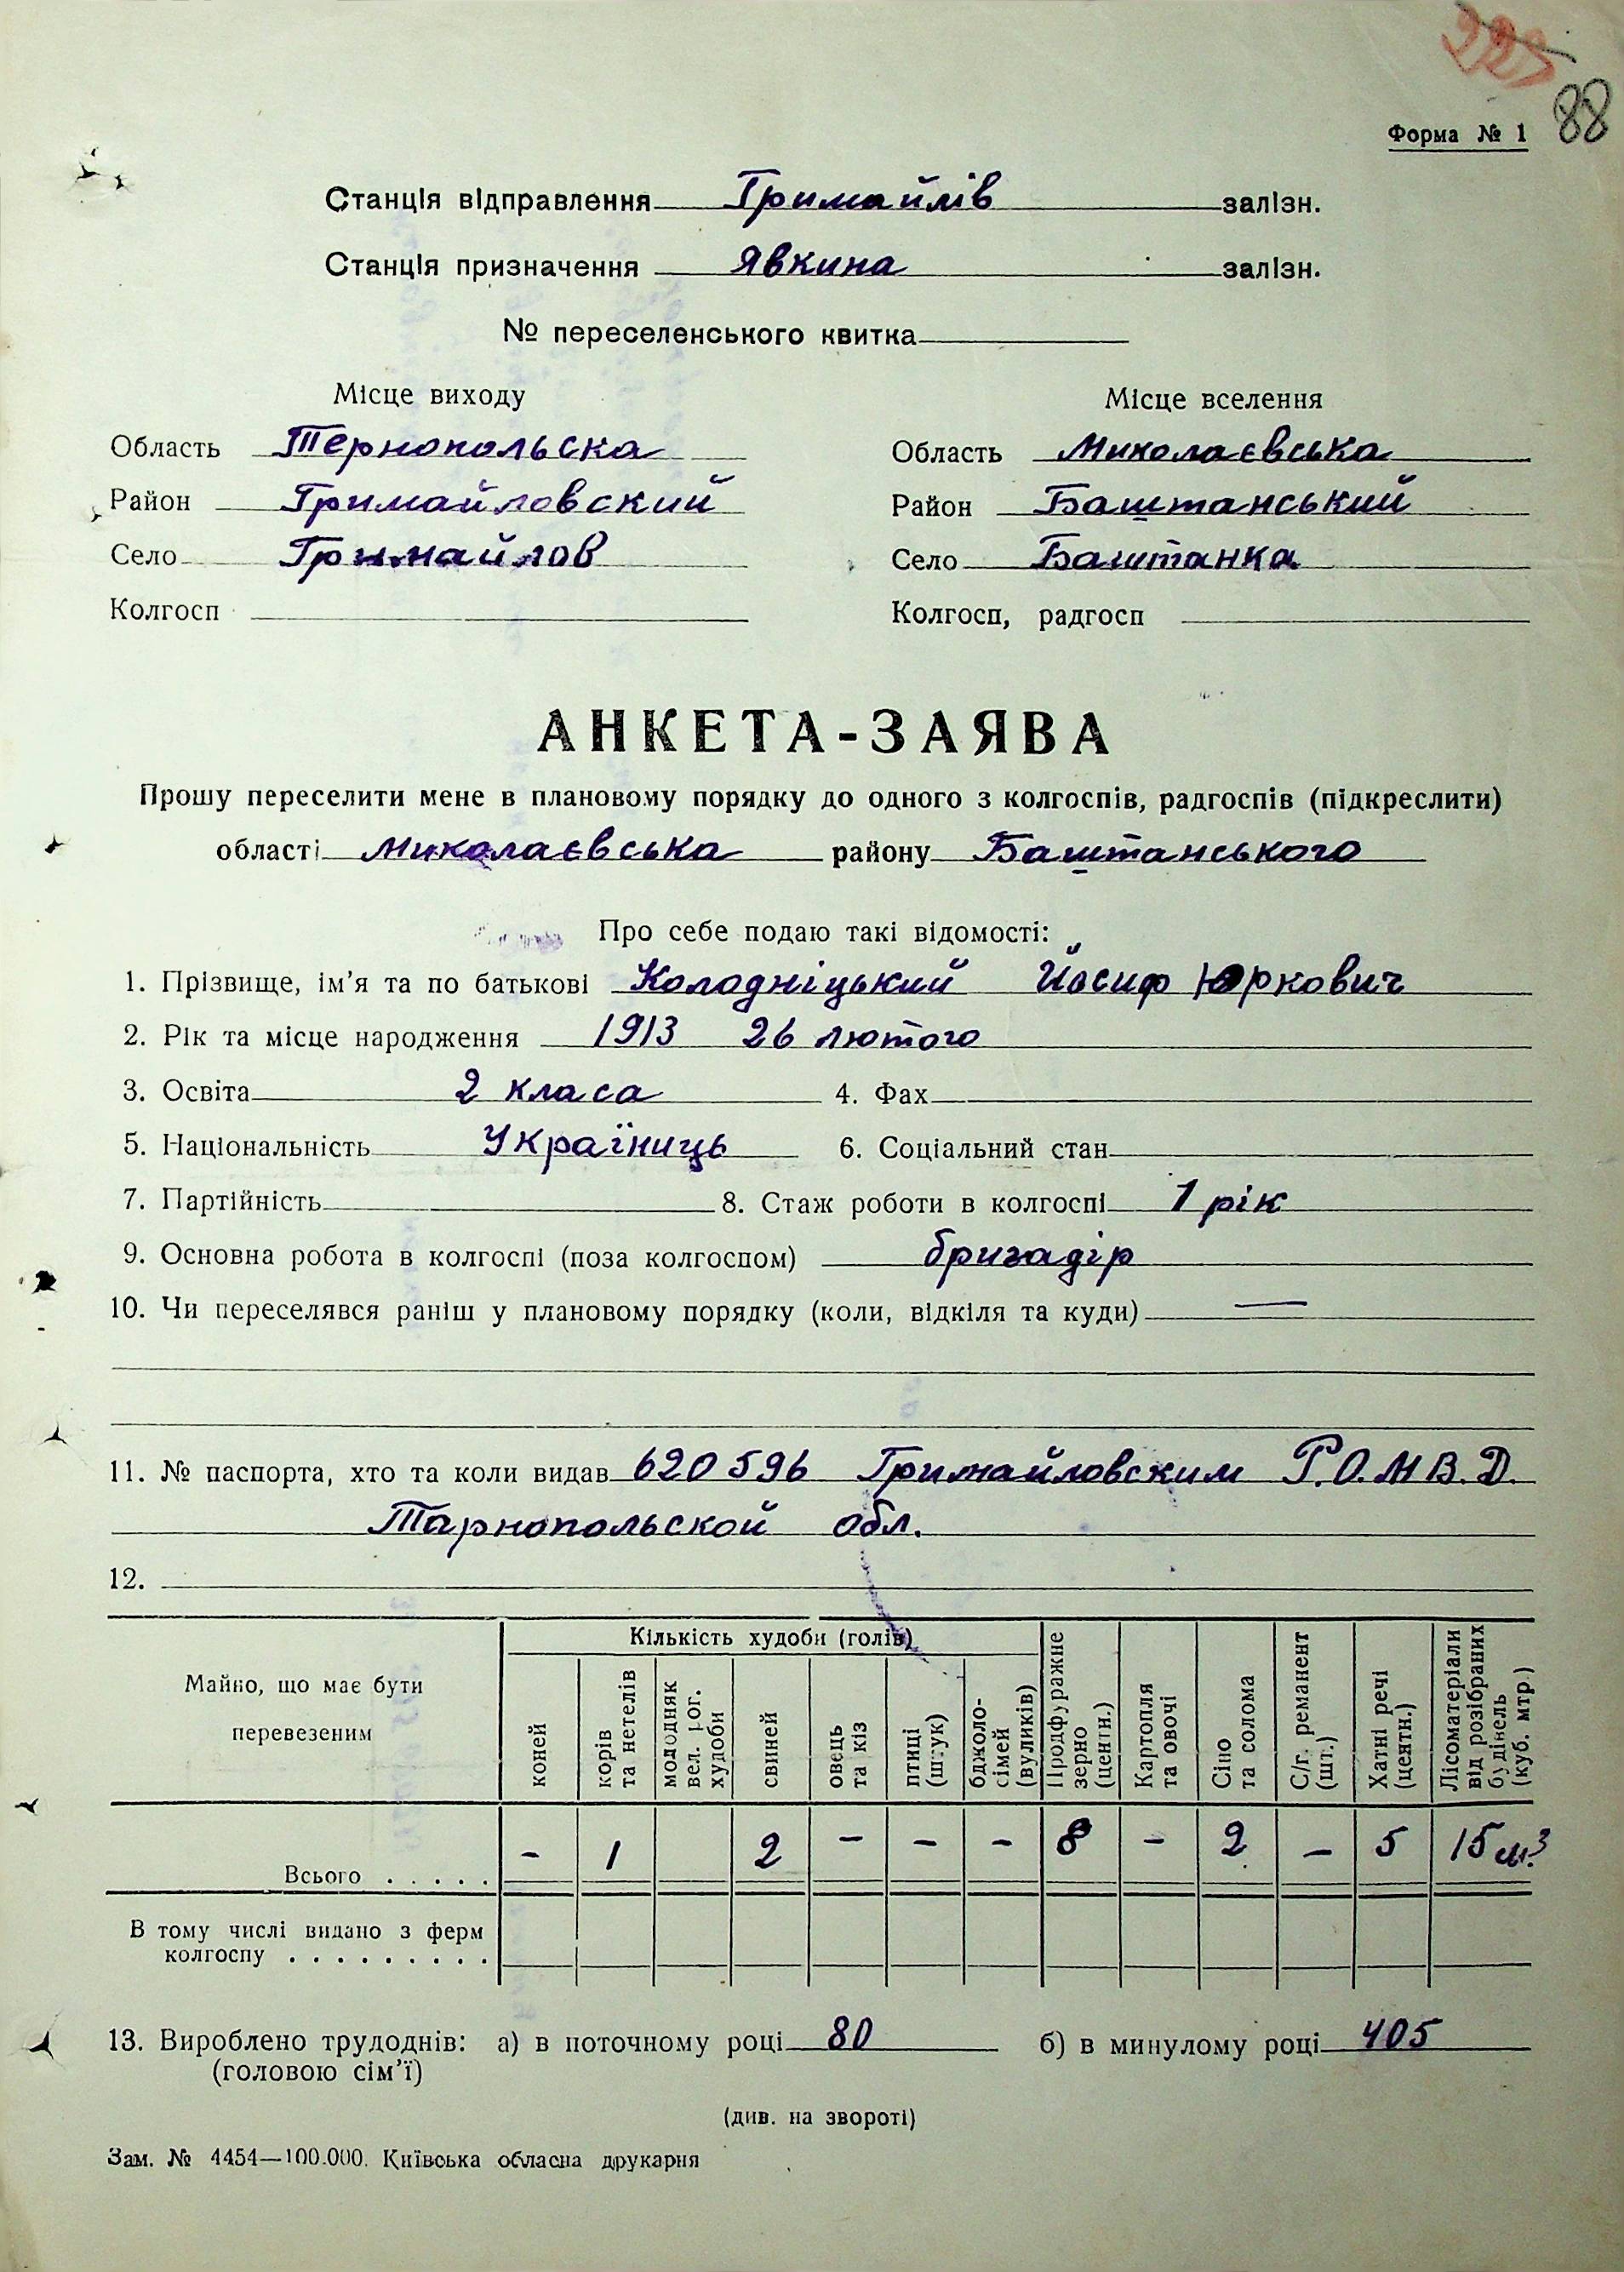 225
88
Форма № 1
Станція відправлення Гримайлів залізн.
Станція призначення Явкина залізн.
№ переселенського квитка
Місце виходу Місце вселення
Область Тернопольска Область Миколаєвська
Район Гримайловский Район Баштанський
Село Гримайлов Село Баштанка
Колгосп Колгосп, радгосп
АНКЕТА-ЗАЯВА
Прошу переселити мене в плановому порядку до одного з колгоспів, радгоспів (підкреслити)
області Миколаєвська району Баштанського
Про себе подаю такі відомості:
1. Прізвище, ім'я та по батькові Колодніцький Йосиф Юркович
2. Рік та місце народження 1913 26 лютого
3. Освіта 2 класа 4. Фах
5. Національність Україниць 6. Соціальний стан
7. Партійність 8. Стаж роботи в колгоспі 1 рік
9. Основна робота в колгоспі (поза колгоспом) бригадір
10. Чи переселявся раніш у плановому порядку (коли, відкіля та куди) —
11. № паспорта, хто та коли видав 620596 Гримайловским Р.О.М.В.Д.
Тарнопольской обл.
12.
Майно, що має бути перевезеним
Кількість худоби (голів)
коней
корів та нетелів
молодняк вел. рог. худоби
свиней
овець та кіз
птиці (штук)
бджоло-сімей (вуликів)
Продфуражне зерно (центн.)
Картопля та овочі
Сіно та солома
С/г. реманент (шт.)
Хатні речі (центн.)
Лісоматеріали від розібраних будівель (куб. мтр.)
Всього . . . . . - 1 2 - - - 8 - 2 - 5 15 м³
В тому числі видано з ферм
колгоспу . . . . . . . . .
13. Вироблено трудоднів: а) в поточному році 80 б) в минулому році 405
(головою сім'ї)
(див. на звороті)
Зам. № 4454—100.000. Київська обласна друкарня